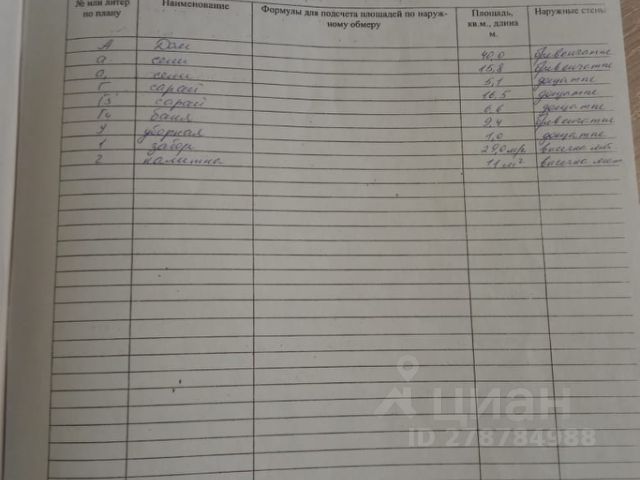 № или литер по плану Наименование Формулы для подсчета площадей по наруж- ному обмеру Площадь, кв.м., длина м. Наружные стены
А Дом 40,0 бревенчатые
а сени 15,8 бревенчатые
а₁ сени 5,1 дощатые
Г сарай 16,5 дощатые
Г3 сарай 6,6 дощатые
Г4 баня 9,4 бревенчатые
У уборная 1,0 дощатые
1 забор
2 калитка 11 м²
циан
ID 278784988